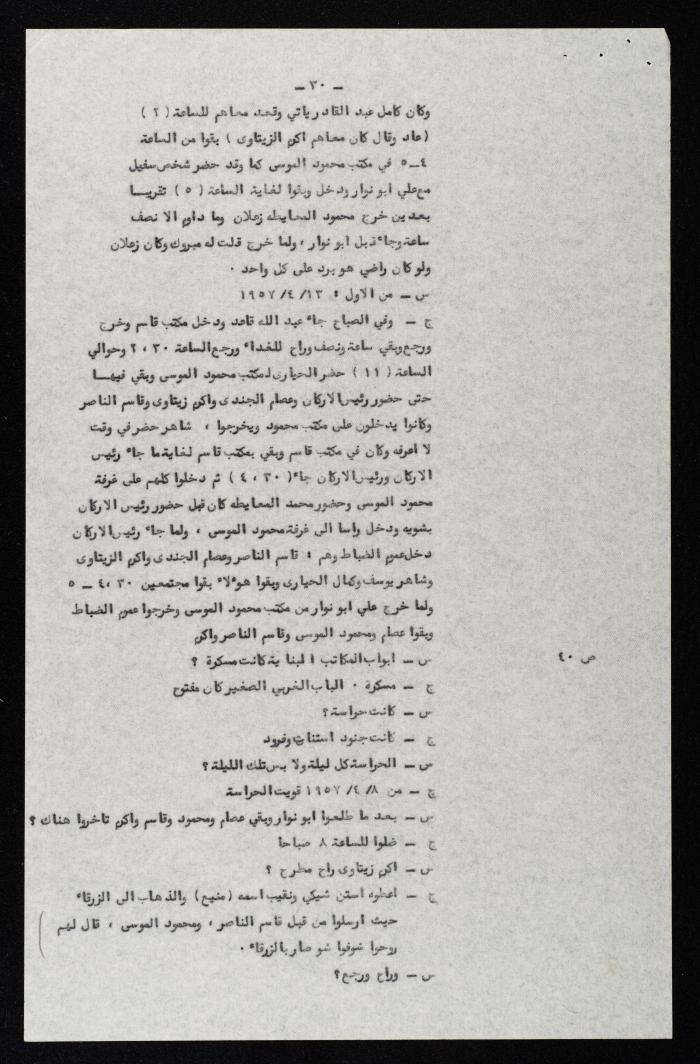 - ٣٠ -
وكان كامل عبد القادر ياتي وقعد معاهم للساعة ( ٢ )
( عاد وقال كان معاهم اكرم الزيتاوى ) بقوا من الساعة
٤ــ٥ في مكتب محمود الموسى كما وقد حضر شخص سفيل
مع علي ابو نوار ودخل وبقوا لغاية الساعة ( ٥ ) تقريبـــا
بعدين خرج محمود المعايطه زعلان وما داوم الا نصف
ساعة وجاء قبل ابو نوار ، ولما خرج قلت له مبروك وكان زعلان
ولو كان راضي هو يرد على كل واحد .
س ــ من الاول : ١٣/ ٤/ ١٩٥٧
ج ــ وفي الصباح جاء عبد الله قاعد ودخل مكتب قاسم وخرج
ورجع وبقي ساعة ونصف وراح للغداء ورجع الساعة ٣٠ ، ٢ وحوالي
الساعة ( ١١ ) حضر الحيارى لمكتب محمود الموسى وبقي فيهـــا
حتى حضور رئيس الاركان وعصام الجندى واكرم زيتاوى وقاسم الناصر
وكانوا يدخلون على مكتب محمود ويخرجوا ، شاهر حضر في وقت
لا اعرفه وكان في مكتب قاسم وبقي بمكتب قاسم لغاية ما جاء رئيس
الاركان ورئيس الاركان جاء ( ٣٠ ، ٤ ) ثم دخلوا كلهم على غرفة
محمود الموسى وحضور محمد المعايطه كان قبل حضور رئيس الاركان
بشويه ودخل راسا الى غرفة محمود الموسى ، ولما جاء رئيس الاركان
دخل عموم الضباط وهم : قاسم الناصر وعصام الجندى واكرم الزيتاوى
وشاهر يوسف وكمال الحيارى وبقوا هوءلاء بقوا مجتمعين ٣٠ ،٤ ــ ٥
ولما خرج علي ابو نوار من مكتب محمود الموسى وخرجوا عموم الضباط
وبقوا عصام ومحمود الموسى وقاسم الناصر واكرم
س ــ ابواب المكاتب البناية كانت مسكرة ؟
ص ٤٠
ج ــ مسكرة . الباب الغربي الصغير كان مفتوح
س ــ كانت حراسة ؟
ج ــ كانت جنود استنات وفرود
س ــ الحراسة كل ليلة ولا بس تلك الليلة ؟
ج ــ من ٨/ ٤/ ١٩٥٧ قويت الحراسة
س ــ بعد ما طلعوا ابو نوار وبقي عصام ومحمود وقاسم واكرم تاخروا هناك ؟
ج ــ ضلوا للساعة ٨ صباحا
س ــ اكرم زيتاوى راح مطرح ؟
ج ــ اعطوه استن شيكي ونقيب اسمه (منيع) والذهاب الى الزرقاء
حيث ارسلوا من قبل قاسم الناصر ، ومحمود الموسى ، قال لهم
روحوا شوفوا شو صار بالزرقاء .
س ــ وراح ورجع ؟